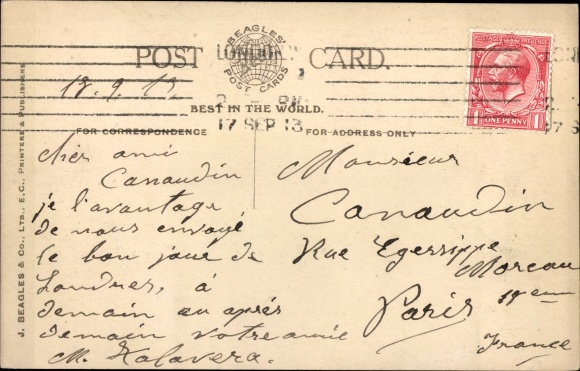 POST CARD.
BEAGLES' POST CARDS
BEST IN THE WORLD.
FOR CORRESPONDENCE
FOR ADDRESS ONLY
LONDON
17 SEP 13
POSTAGE REVENUE
1 ONE PENNY 1
J. BEAGLES & CO., LTD., E.C., PRINTERS & PUBLISHERS
cher ami
Canaudin
je l'avantage
de vous envoyé
le bon jour de
Londres, à
demain au après
demain votre amie
M. Kalavera.
Monsieur
Canaudin
Rue Egersippe
Moreau
Paris
18 eme
France